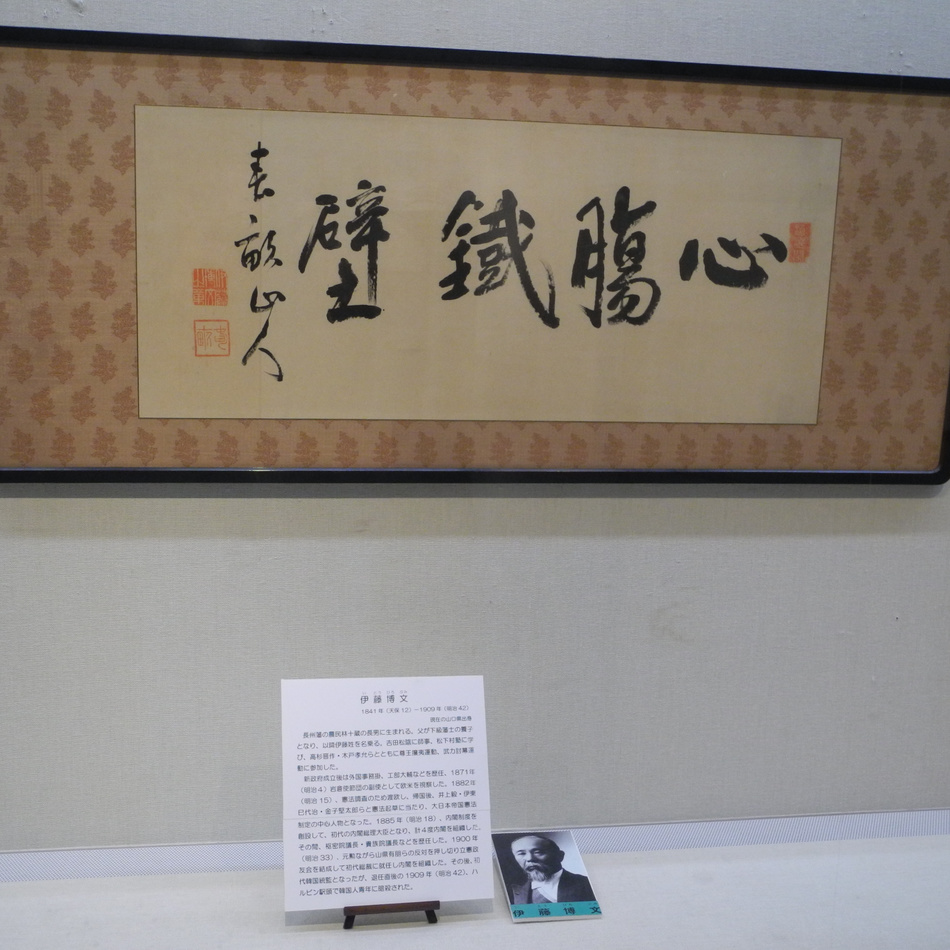 心腸鐵壁
春畝山人
伊藤博文
1841年（天保12）－1909年（明治42）
現在の山口県出身
長州藩の農民林十蔵の長男に生まれる。父が下級藩士の養子
となり、以降伊藤姓を名乗る。吉田松陰に師事、松下村塾に学
び、高杉晋作・木戸孝允らとともに尊王攘夷運動、武力討幕運
動に参加した。
新政府成立後は外国事務掛、工部大輔などを歴任。1871年
（明治4）岩倉使節団の副使として欧米を視察した。1882年
（明治15）、憲法調査のため渡欧し、帰国後、井上毅・伊東
巳代治・金子堅太郎らと憲法起草に当たり、大日本帝国憲法
制定の中心人物となった。1885年（明治18）、内閣制度を
創設して、初代の内閣総理大臣となり、計4度内閣を組織した。
その間、枢密院議長・貴族院議長などを歴任した。1900年
（明治33）、元勲ながら山県有朋らの反対を押し切り立憲政
友会を結成して初代総裁に就任し内閣を組織した。その後、初
代韓国統監となったが、退任直後の1909年（明治42）、ハ
ルビン駅頭で韓国人青年に暗殺された。
伊藤博文